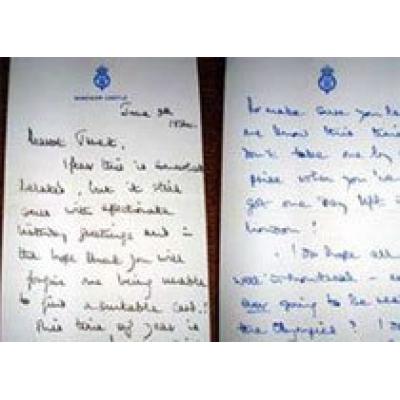 WINDSOR CASTLE
June
Dearest
I fear this is somewhat
belated, but it still
comes with affectionate
birthday greetings and in
the hope that you will
forgive me being unable
to find a suitable card!
This time of year is
make sure you le
me know this time
Don't take me by
prise when you've
got one day left i
London!
I do hope all
well in Montreal -
ever going to be rea
the Olympics? I d